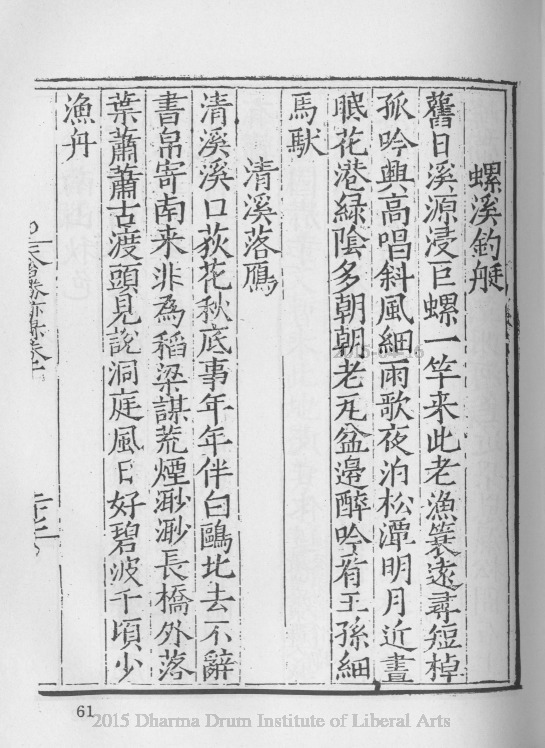 螺溪釣艇
舊日溪源浸巨螺一竿来此老漁簑遠尋短棹
孤吟興髙唱斜風細雨歌夜泊松潭明月近晝
眠花港緑陰多朝朝老瓦盆邉醉吟看王孫細
馬馱
清溪落鴈
清溪溪口荻花秋底事年年伴白鷗北去不辭
書帛寄南来非為稻梁謀荒煙渺渺長橋外落
葉蕭蕭古渡頭見說洞庭風日好碧波千頃少
漁舟
2015-04-16
61
2015 Dharma Drum Institute of Liberal Arts